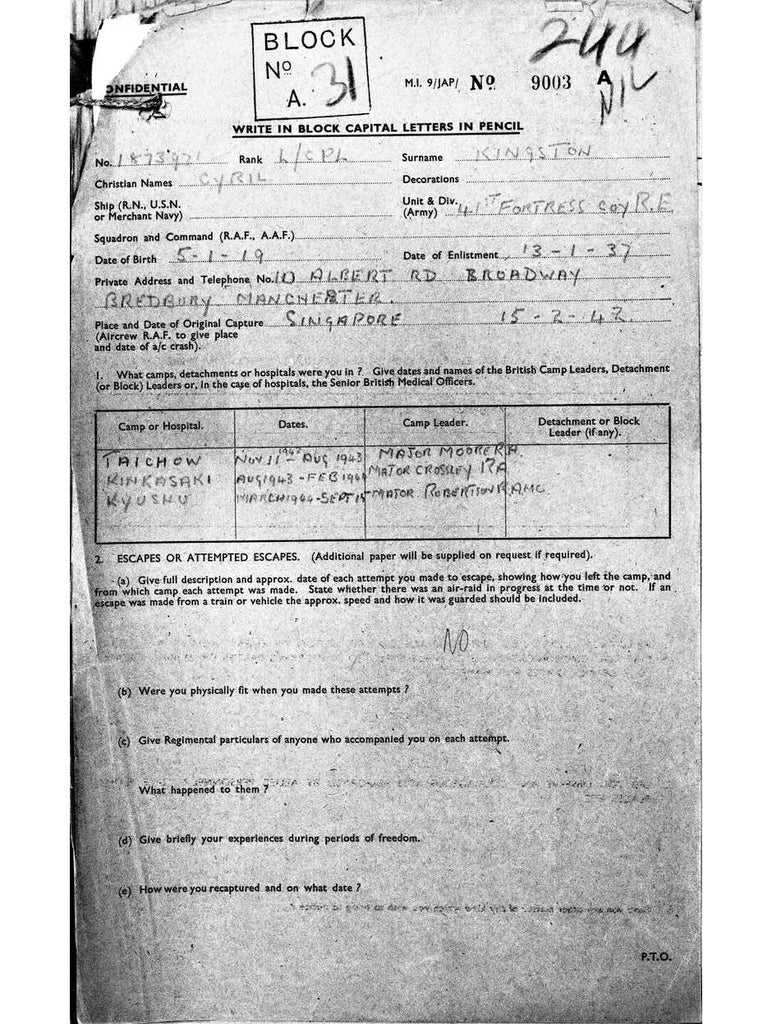 BLOCK
Nº
A. 31
244
ONFIDENTIAL
M.I. 9/JAP/ Nº 9003 A
NIL
WRITE IN BLOCK CAPITAL LETTERS IN PENCIL
No. 1873971 Rank L/CPL Surname KINGSTON
Christian Names CYRIL Decorations
Ship (R.N., U.S.N. or Merchant Navy) Unit & Div. (Army) 41ST FORTRESS COY R.E.
Squadron and Command (R.A.F., A.A.F.)
Date of Birth 5-1-19 Date of Enlistment 13-1-37
Private Address and Telephone No. 10 ALBERT RD BROADWAY
BREDBURY MANCHESTER.
Place and Date of Original Capture SINGAPORE 15-2-42.
(Aircrew R.A.F. to give place
and date of a/c crash).
1. What camps, detachments or hospitals were you in ? Give dates and names of the British Camp Leaders, Detachment
(or Block) Leaders or, in the case of hospitals, the Senior British Medical Officers.
Camp or Hospital. Dates. Camp Leader. Detachment or Block Leader (if any).
TAICHOW NOV 11 1942 - AUG 1943 MAJOR MOORE R.A.
KINKASAKI AUG 1943 - FEB 1944 MAJOR CROSSLEY RA
KYUSHU MARCH 1944 - SEPT MAJOR ROBERTSON RAMC
2. ESCAPES OR ATTEMPTED ESCAPES. (Additional paper will be supplied on request if required).
(a) Give full description and approx. date of each attempt you made to escape, showing how you left the camp, and
from which camp each attempt was made. State whether there was an air-raid in progress at the time or not. If an
escape was made from a train or vehicle the approx. speed and how it was guarded should be included.
NO
(b) Were you physically fit when you made these attempts ?
(c) Give Regimental particulars of anyone who accompanied you on each attempt.
What happened to them ?
(d) Give briefly your experiences during periods of freedom.
(e) How were you recaptured and on what date ?
P.T.O.